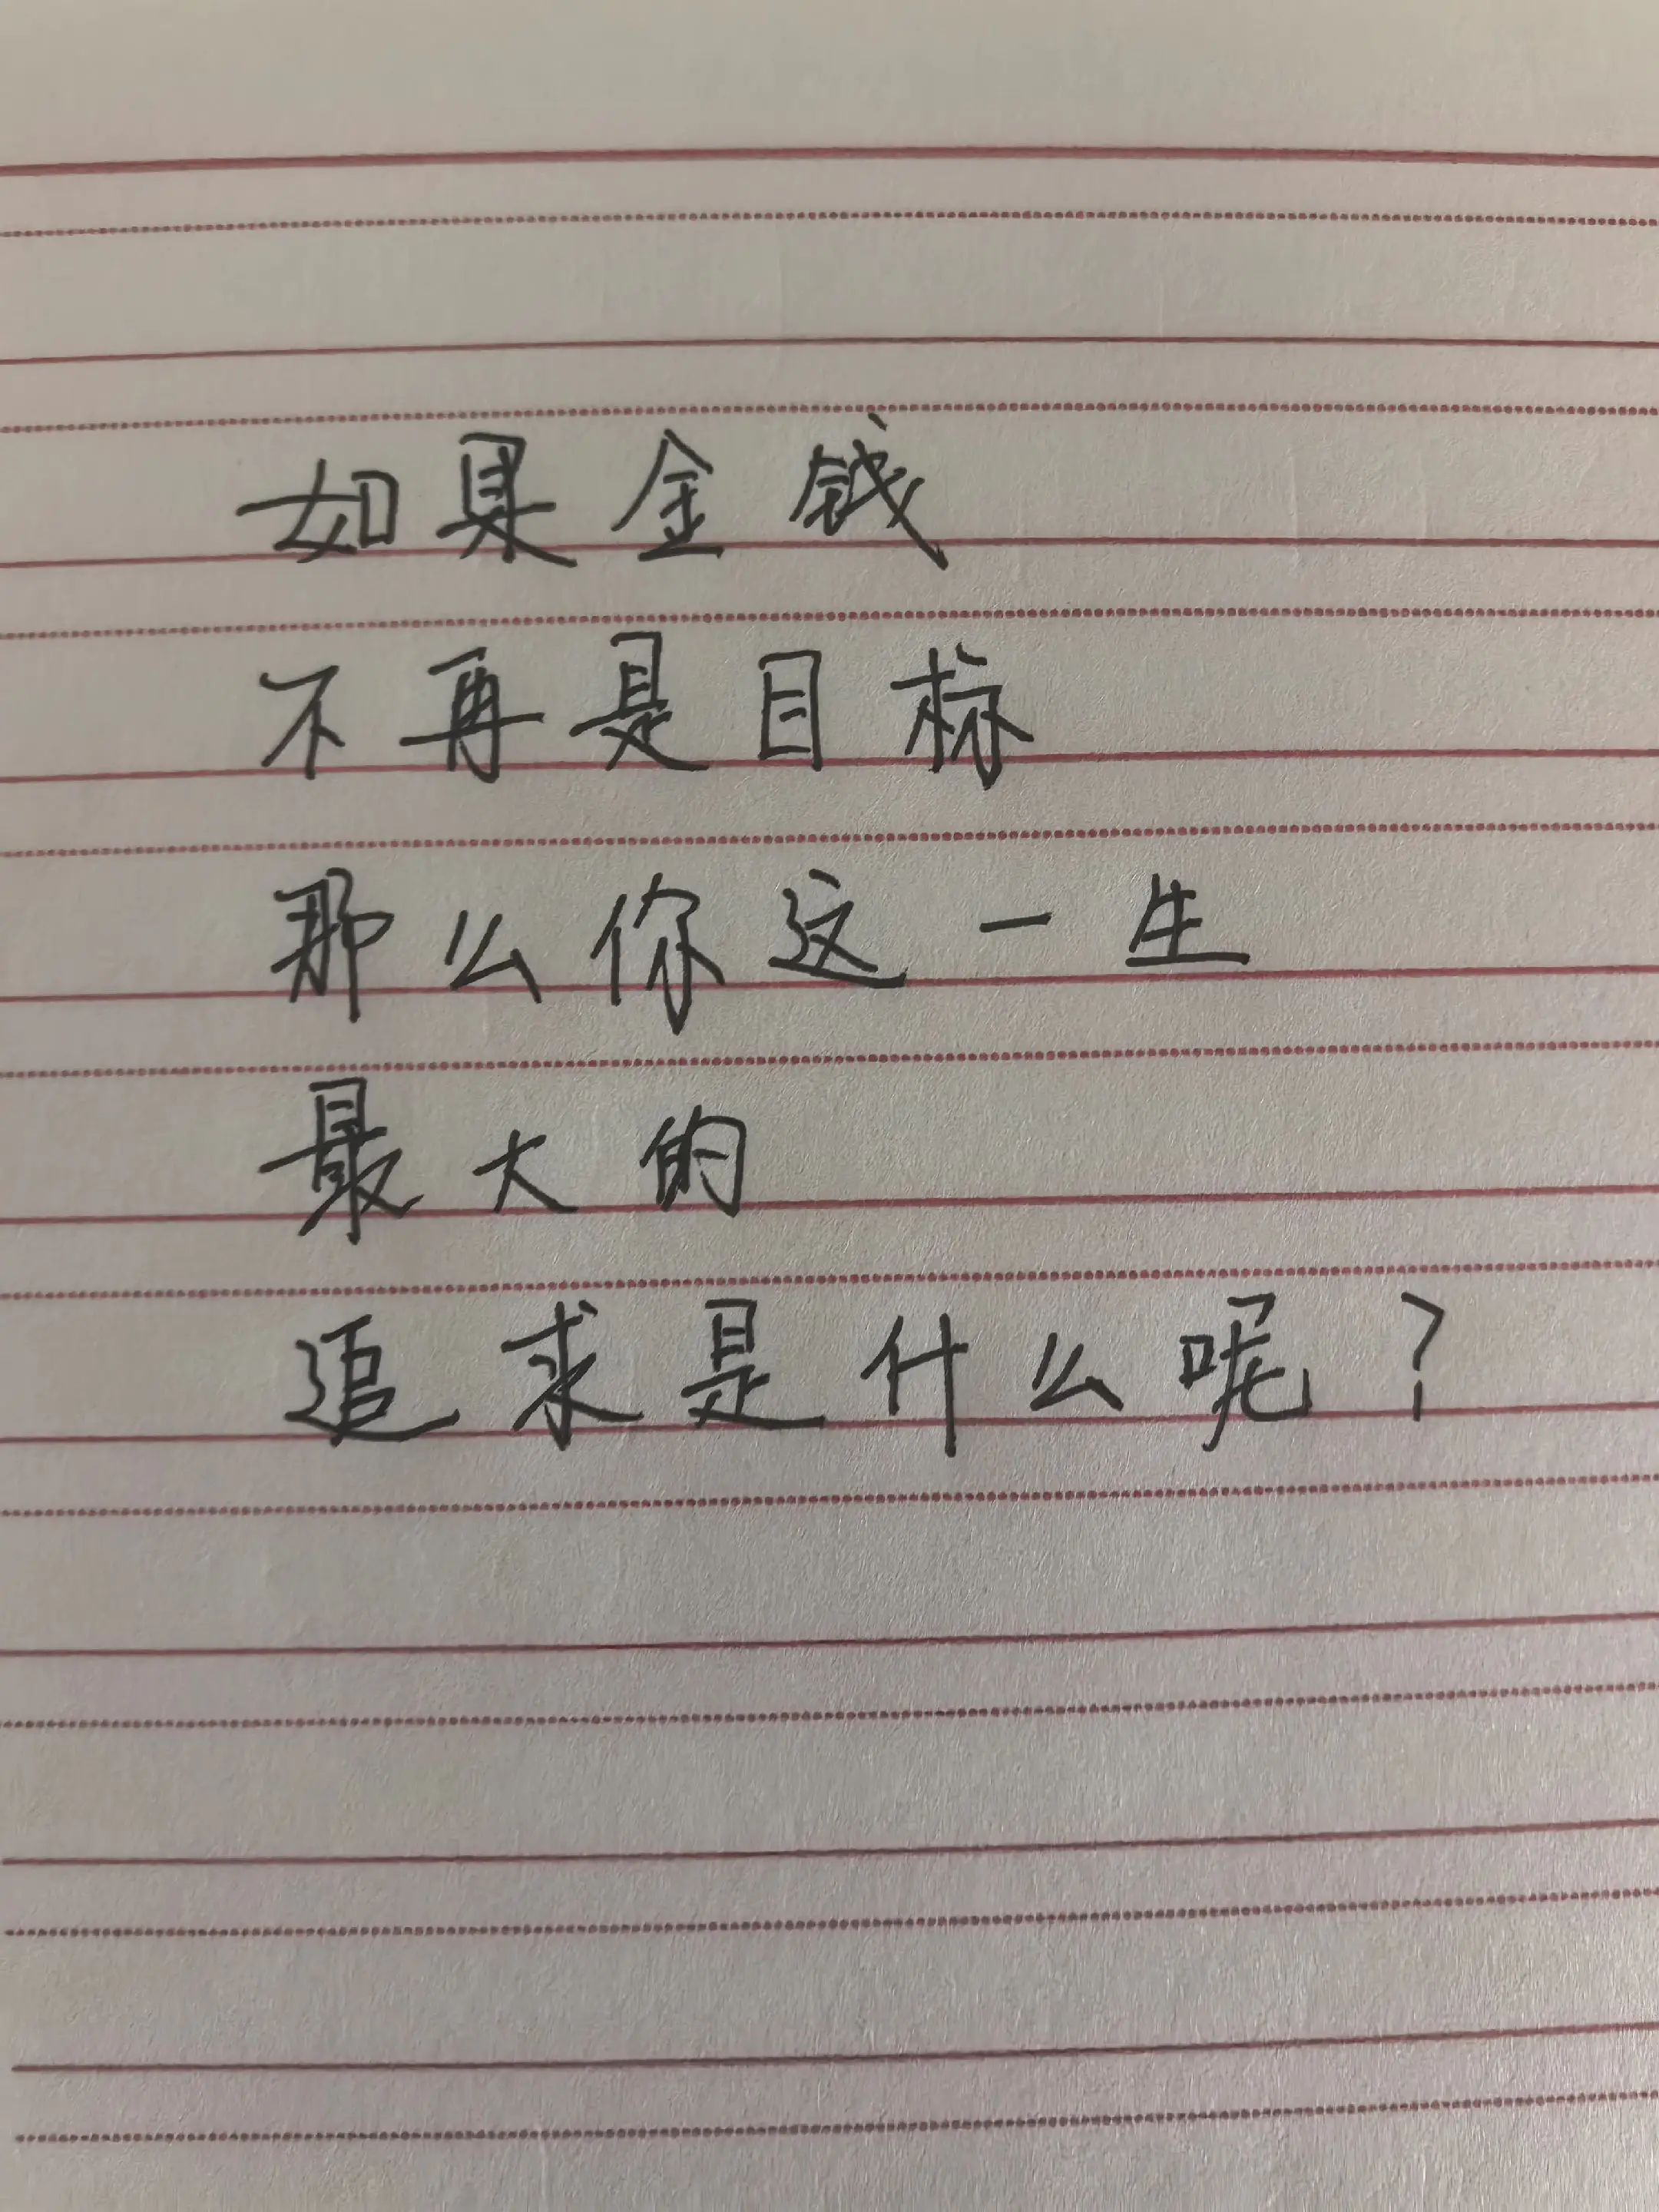 如果金钱
不再是目标
那么你这一生
最大的
追求是什么呢？